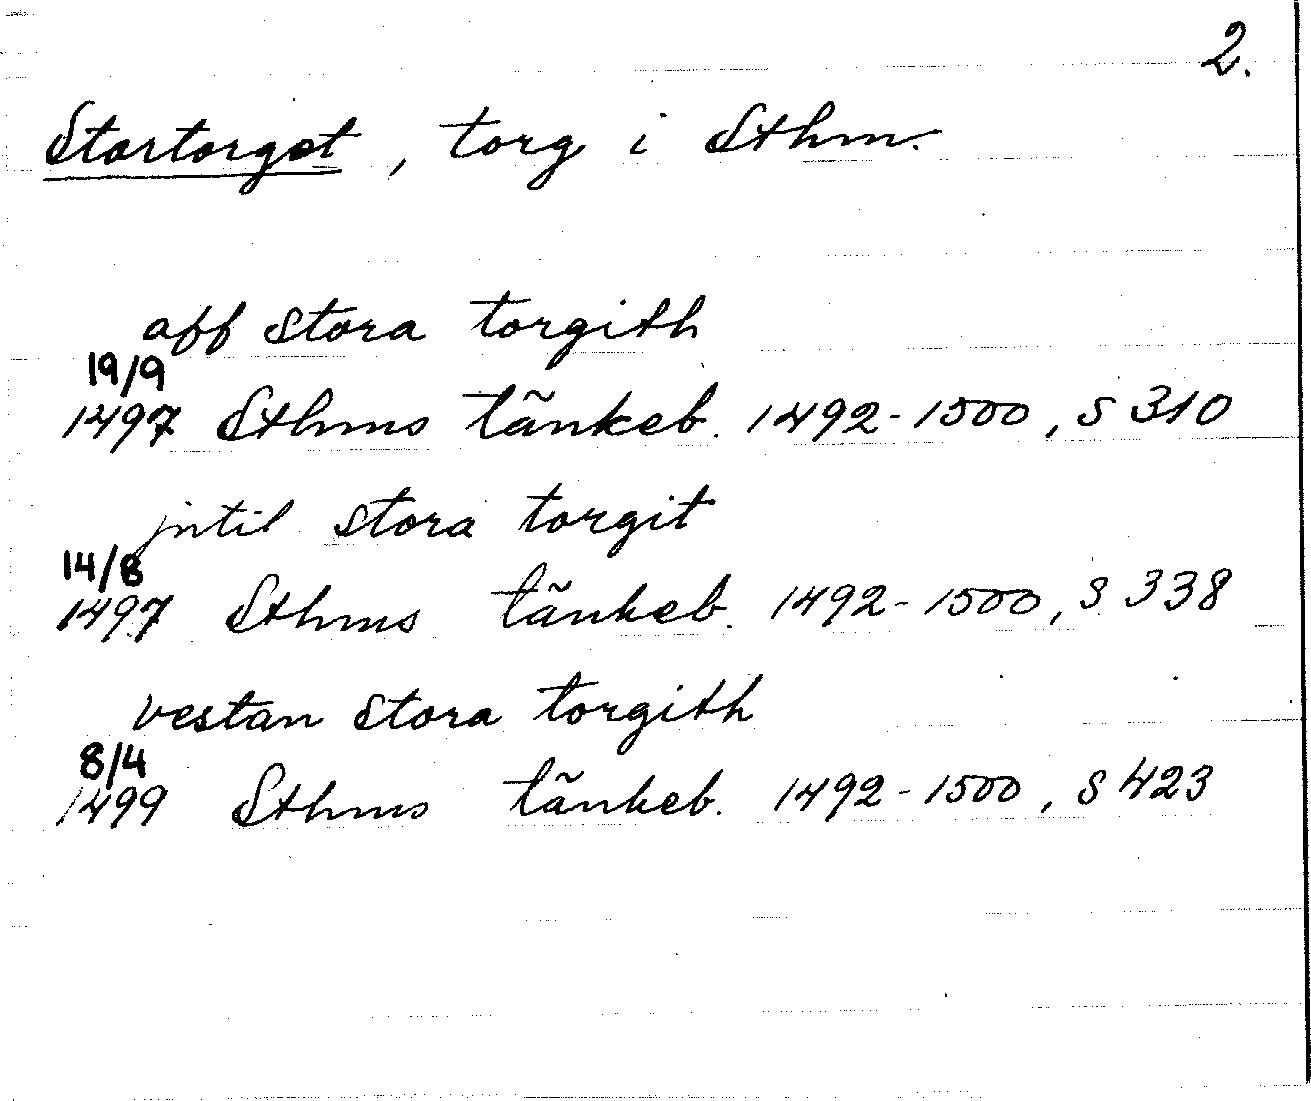 2.
Stortorget, torg i Sthm.
aff stora torgith
19/9
1497 Sthms tänkeb. 1492-1500, s 310
jntil stora torgit
14/8
1497 Sthms tänkeb. 1492-1500, s 338
vestan stora torgith
8/4
1499 Sthms tänkeb. 1492-1500, s 423